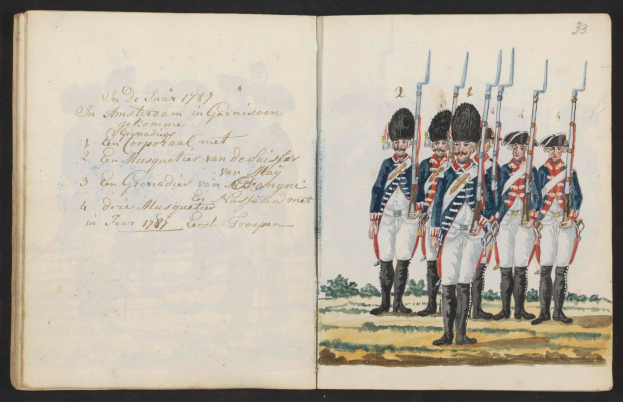 In De Jaar 1787
In Amsterdam in Garnisoen
gekomme
Grenadier
1 Een Corporaal met
2 En Musquetier van de Suisser
van Maÿ
3 Een Grenadier van
En Nassaau met
4 drie Musquetier
in Jaar 1787 Eerst Troepen
33
2
1
4
4